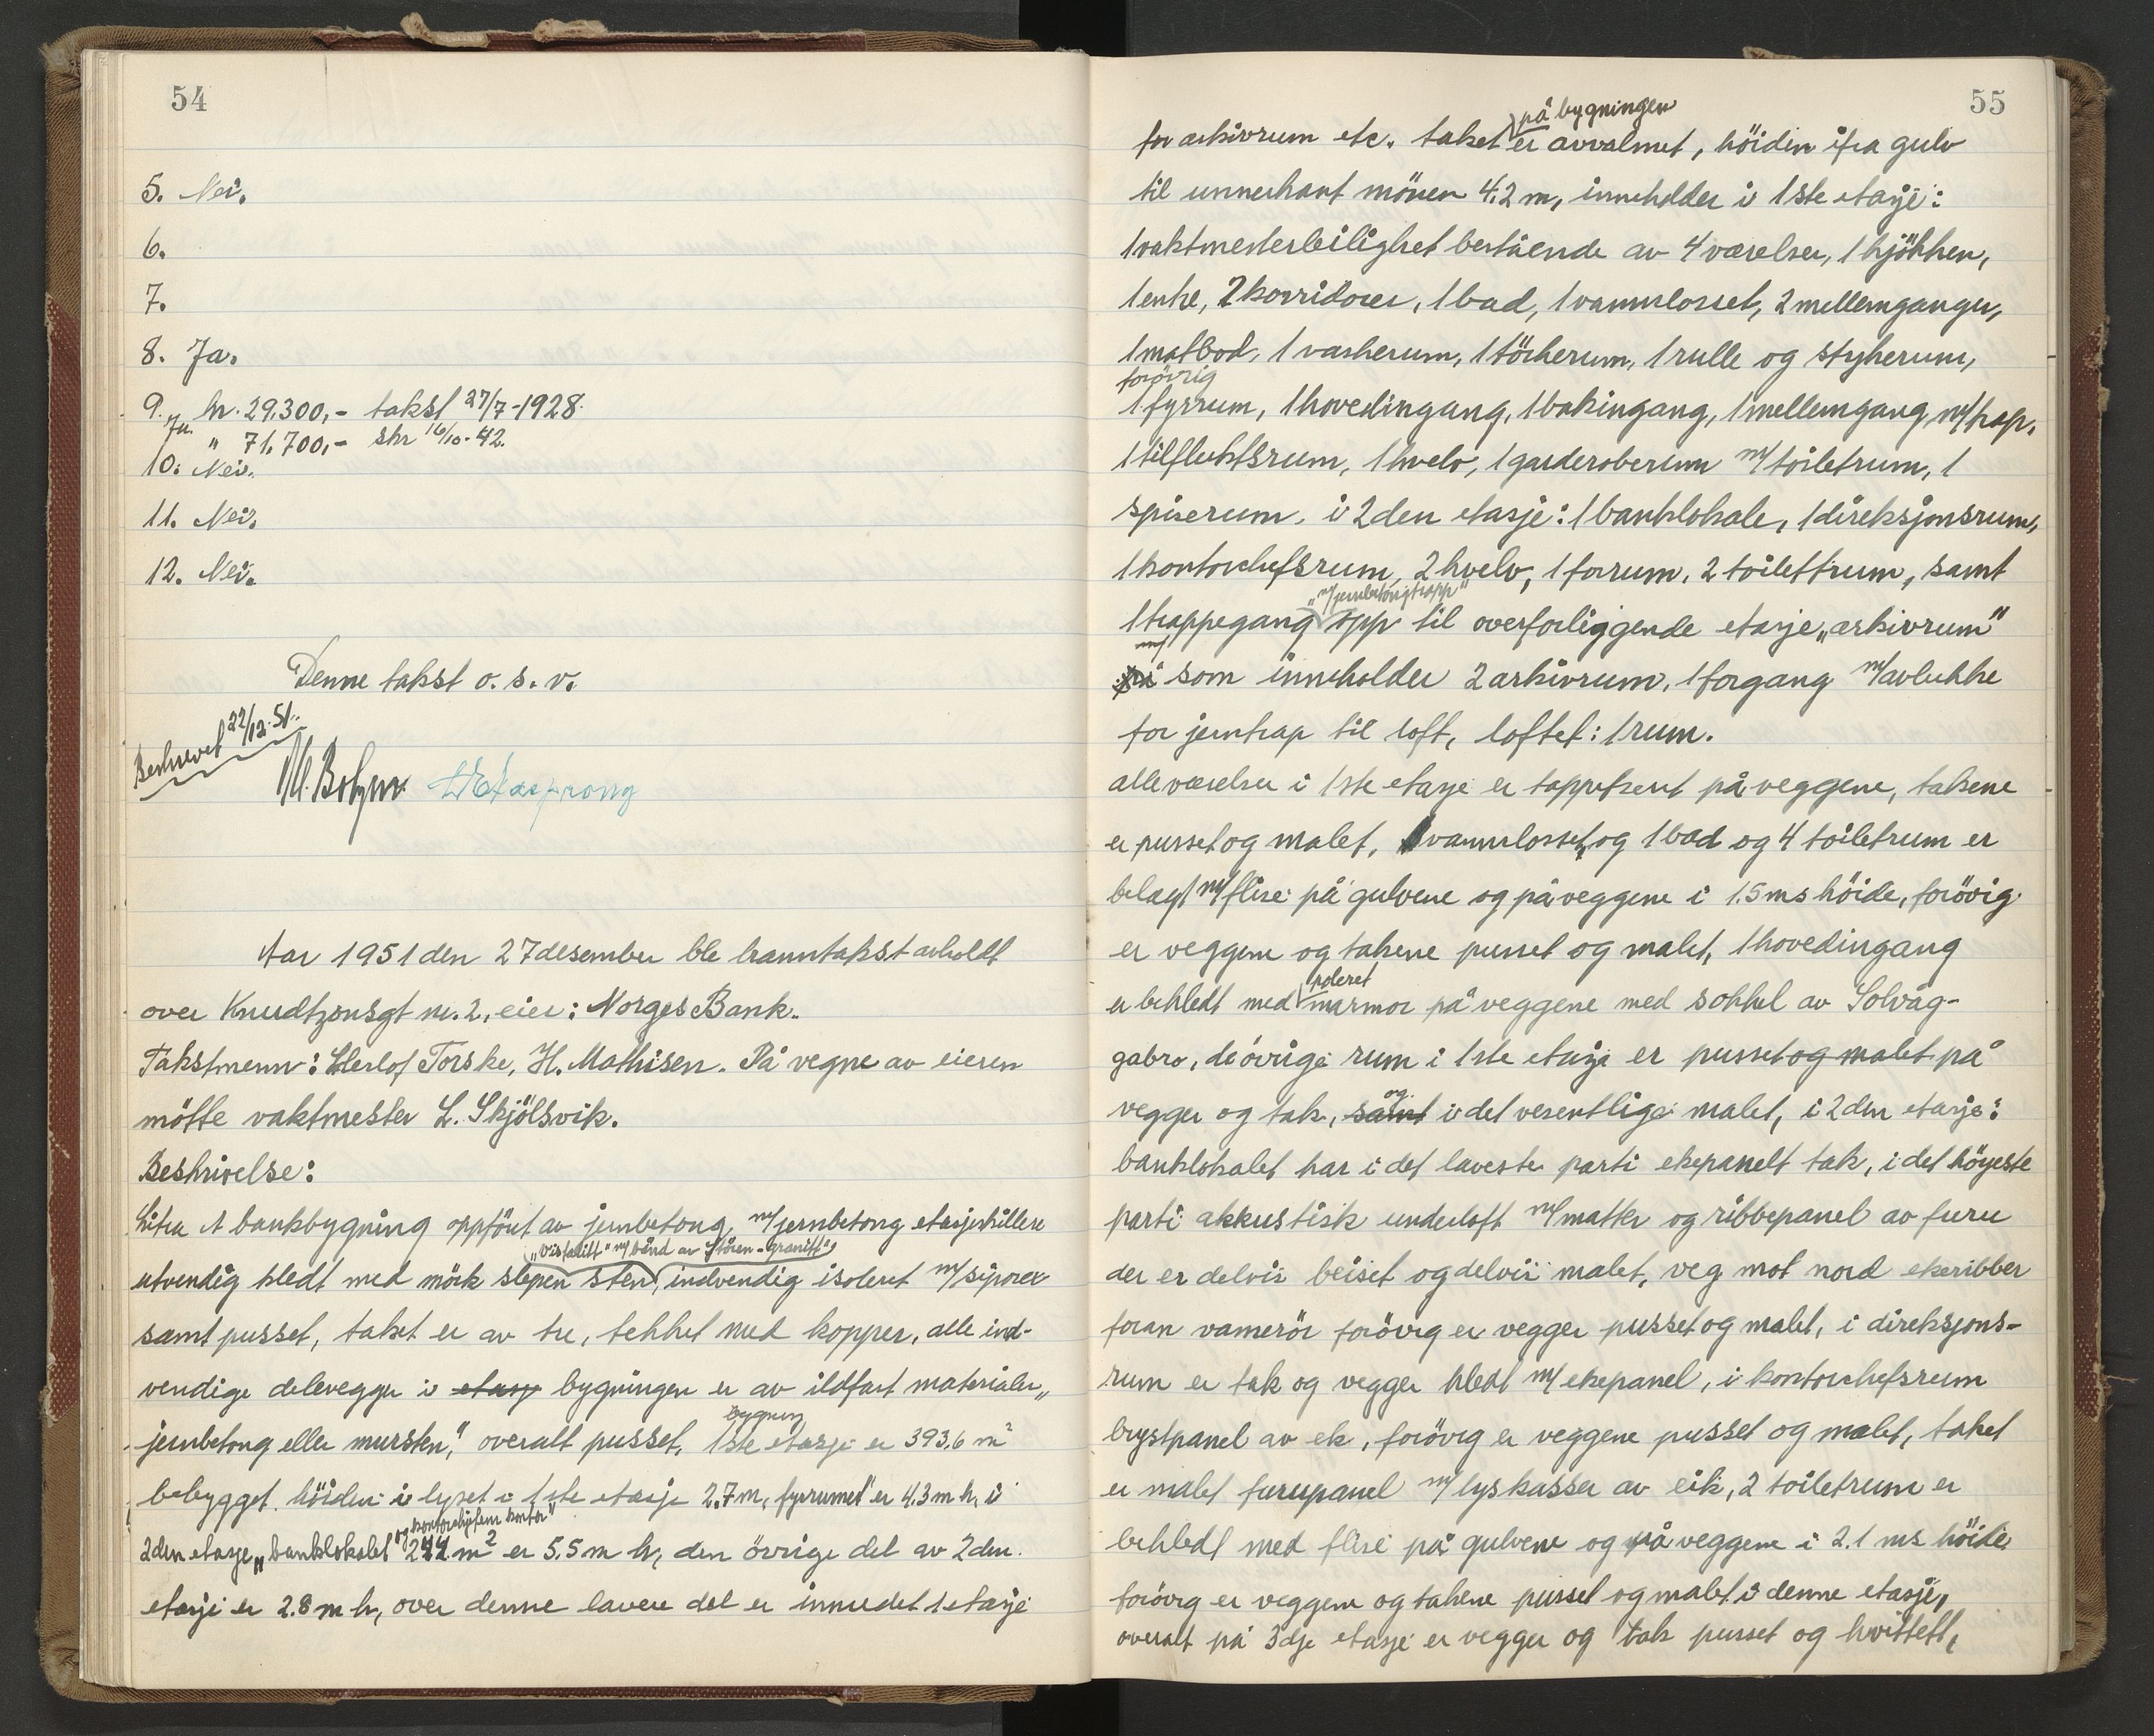 54
5. Nei.
6.
7.
8. Ja.
9. Ja. kr. 29.300,- takst 27/7-1928.
" 71.700,- skr 16/10-42.
10. Nei.
11. Nei.
12. Nei.
Denne takst o. s. v.
Beskrevet 22/12-51.
Aar 1951 den 27 desember ble branntakst avholdt
over Knudtzonsgt nr. 2, eier: Norges Bank.
Takstmenn: Herlof Torske, H. Mathisen. På vegne av eieren
mötte vaktmester L. Skjölsvik.
Beskrivelse:
Litra A bankbygning oppfört av jernbetong, m/jernbetong etasjeskillere
"m/bånd av Stören-Granitt"
utvendig kledt med mörk slepen sten, indvendig isoleret m/siporex
samt pusset, taket er av tre, tekket med kopper, alle ind-
vendige delevegger i etasj bygningen er av ildfast materialer „
jernbetong eller mursten," overalt pusset. 1ste etasje er 393,6 m²
bygning
bebygget. höiden i lyset i 1ste etasje 2.7 m, fyrrumet er 4.3 m h, i
og kontorchefens kontor"
2den etasje „banklokalet 244 m² er 5.5 m h, den övrige del av 2den
etasje er 2.8 m h, over denne lavere del er innredet 1 etasje
55
på bygningen
for arkivrum etc. taket er avvalmet, höiden ifra gulv
til unnerkant mönen 4.2 m, inneholder i 1ste etasje:
1 vaktmesterleilighet bestående av 4 værelser, 1 kjökken,
1 entre, 2 korridorer, 1 bad, 1 vannklosset, 2 mellemganger,
1 matbod, 1 vaskerum, 1 törkerum, 1 rulle og strykerum,
forövrig
1 fyrrum, 1 hovedingang, 1 bakingang, 1 mellemgang m/trap.
1 tilfluktsrum, 1 hvelv, 1 garderoberum m/toiletrum, 1
spiserum. i 2den etasje: 1 banklokale, 1 direksjonsrum,
1 kontorchefsrum, 2 hvelv, 1 forrum, 2 toilettrum, samt
"m/jernbetongtrapp"
1 trappegang opp til overforliggende etasje „arkivrum"
som inneholder 2 arkivrum, 1 forgang m/avlukke
for jerntrap til loft, loftet: 1 rum.
alle værelser i 1ste etasje er tappetsert på veggene, takene
er pusset og malet, vannklosset, og 1 bad og 4 toiletrum er
belagt m/fliser på gulvene og på veggene i 1.5 ms höide, forövrig
er veggene og takene pusset og malet, 1 hovedingang
poleret
er bekledt med marmor på veggene med sokkel av Solvåg-
gabro, de övrige rum i 1ste etasje er pusset og malet på
og
vegger og tak, samt i det vesentlige malet, i 2den etasje:
banklokalet har i det laveste parti ekepanelt tak, i det höyeste
parti akkustisk underloft m/matter og ribbepanel av furu
der er delvis beiset og delvis malet, veg mot nord ekeribber
foran varmerör forövrig er vegger pusset og malet, i direksjons-
rum er tak og vegger kledt m/ekepanel, i kontorchefsrum
brystpanel av ek, forövrig er veggene pusset og malet, taket
er malet furupanel m/lyskasser av eik, 2 toiletrum er
bekledt med fliser på gulvene og på veggene i 2.1 ms höide
forövrig er veggene og takene pusset og malt i denne etasje,
overalt på 3dje etasje er vegger og tak pusset og hvittett,